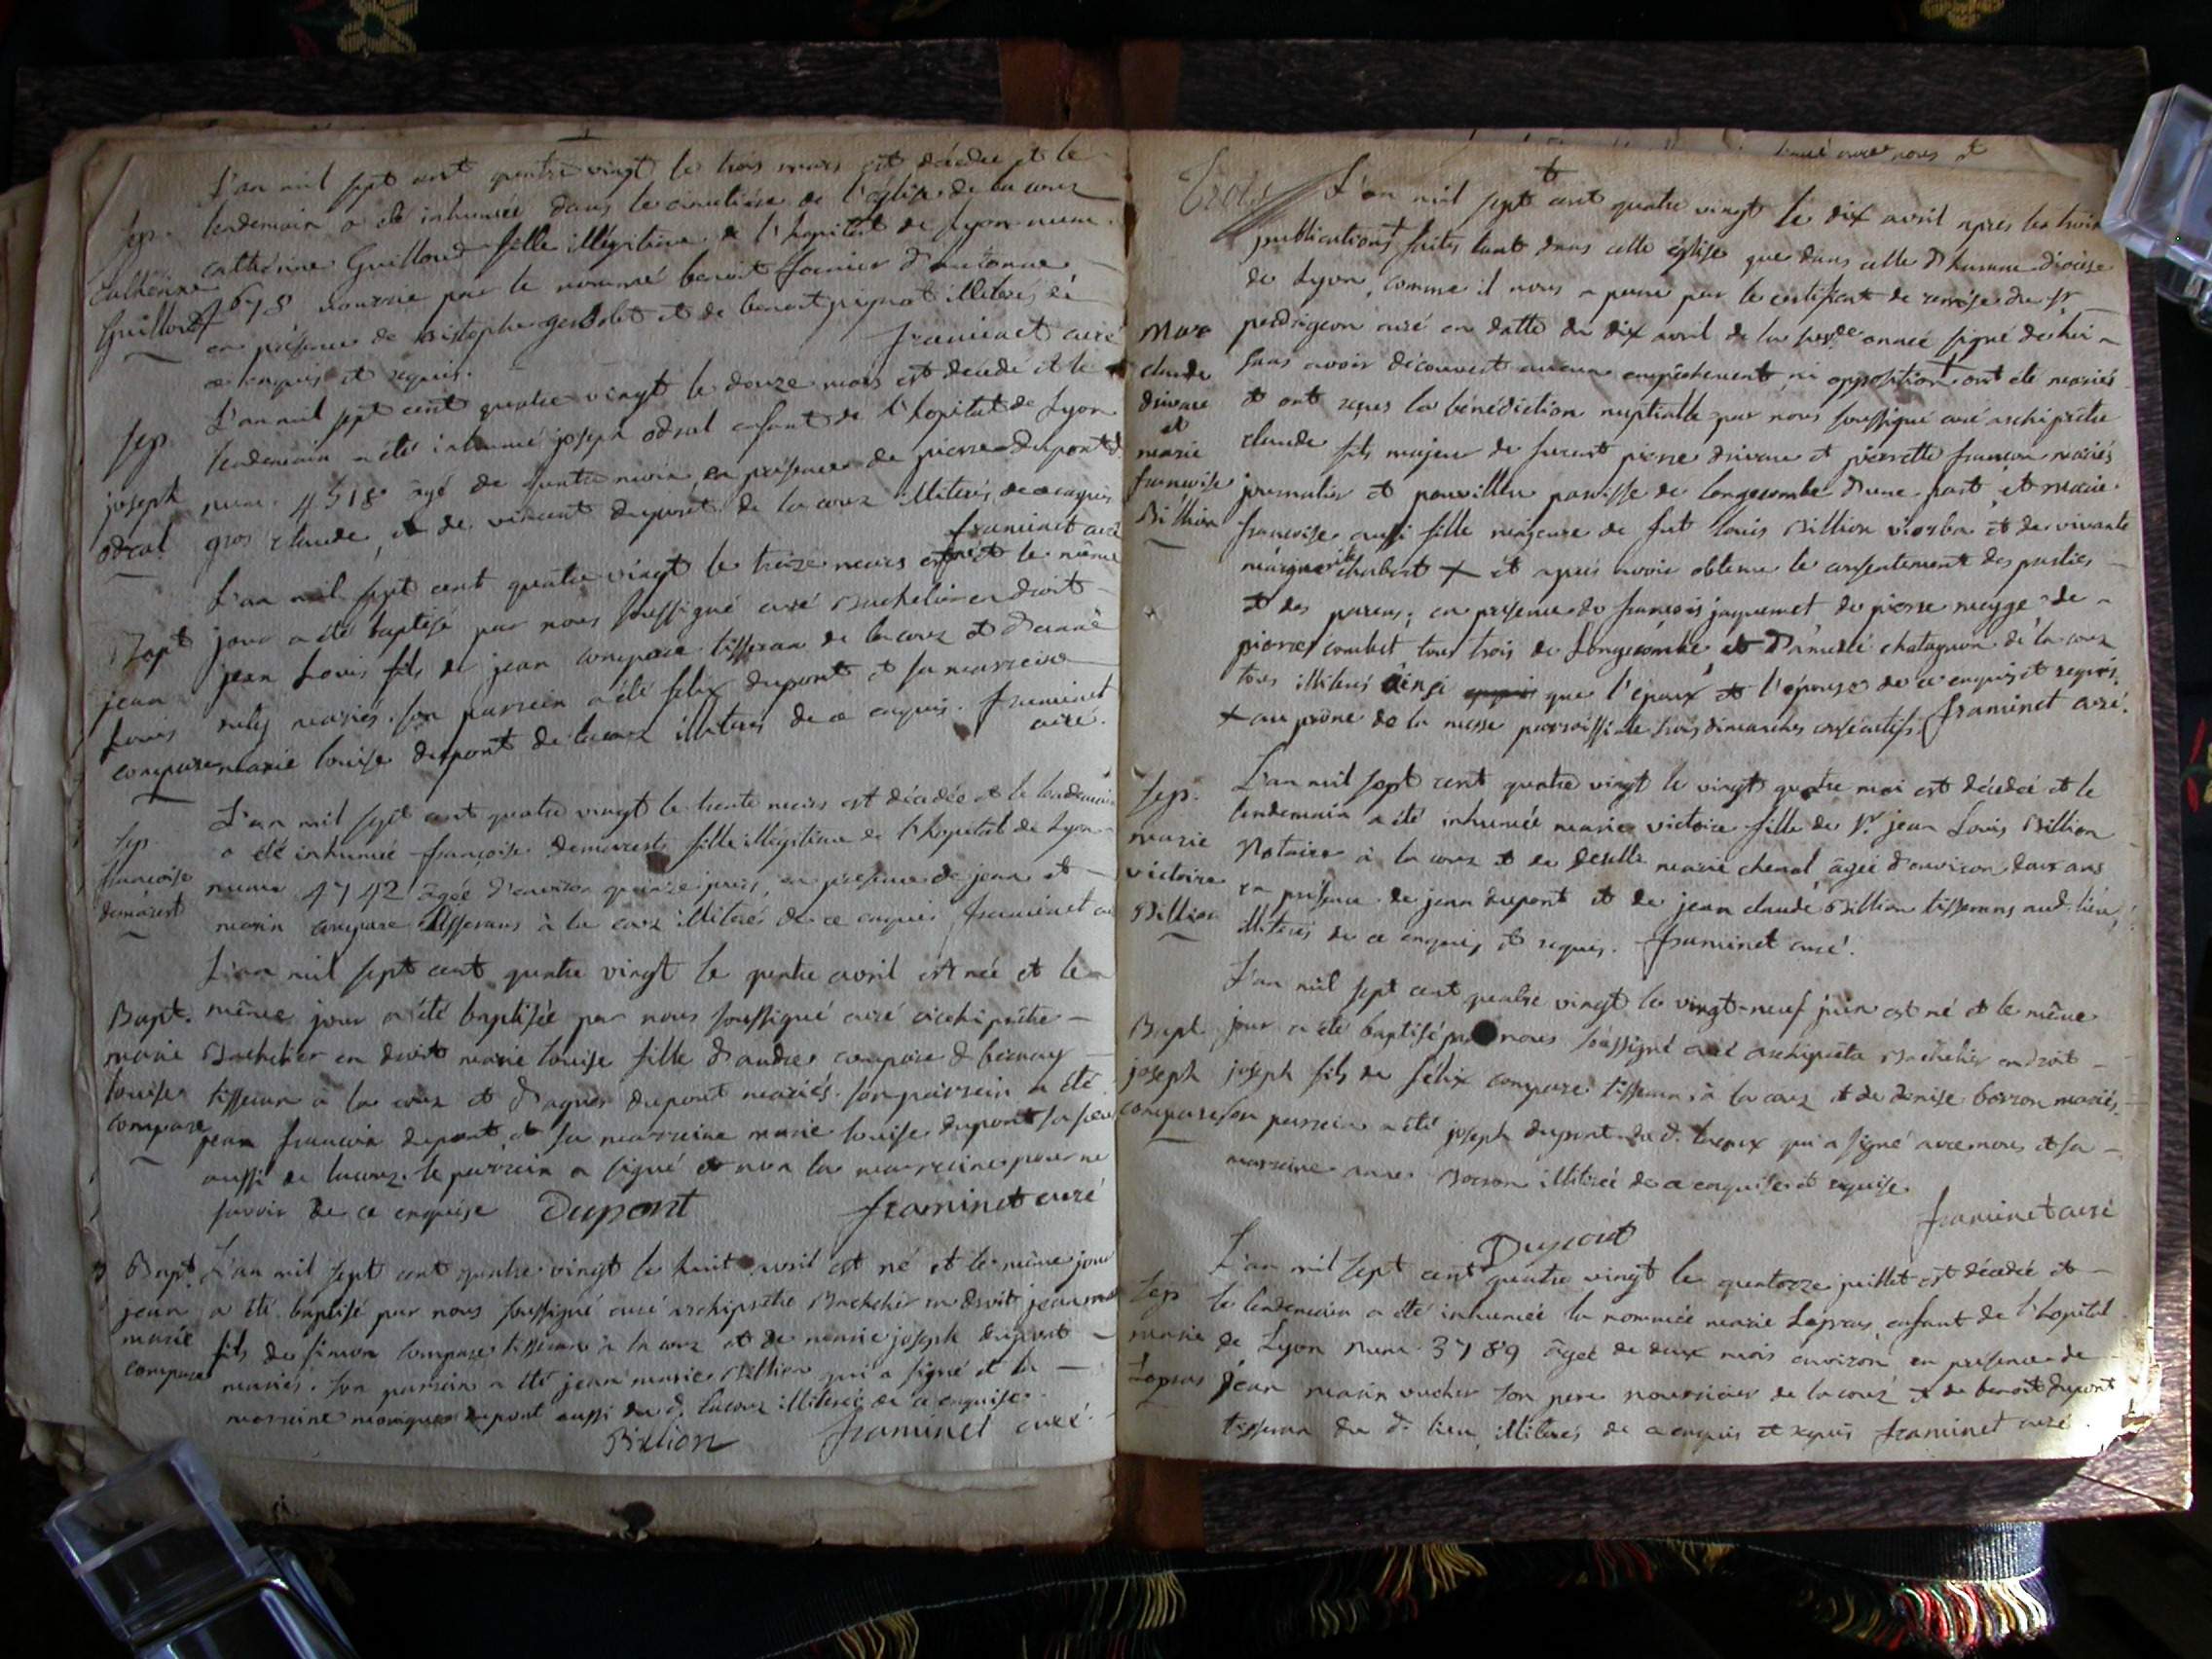 L'an mil sept cent quatre vingt le trois mars est décédée et le
Sep. lendemain a été inhumée dans le cimetière de l'église de la coux
Catherine catherine Guilloud fille illégitime de l'hopital de Lyon num.
Guilloud 1678 nourrie par le nommé benoit
en présence de et de benoit pignot illiterés de
ce enquis et requis. framinet curé
L'an mil sept cent quatre vingt le douze mars est décédé et le
Sep. lendemain a été inhumé joseph odral enfant de l'hopital de Lyon
joseph num. 4518 âgé de quatre mois, en présence de pierre dupont d.
odral gros claude, et de vincent dupont de la coux illiterés de ce enquis
framinet curé
L'an mil sept cent quatre vingt le treize mars est né et le même
Bapt jour a été baptisé par nous soussigné curé Bachelier en droit
jean jean Louis fils de jean compare tisseran de la coux et d'
Louis mariés. son parrein a été felix dupont et sa marreine
compare marie louise dupont de lacoux illiterés de ce enquis. framinet
curé.
L'an mil sept cent quatre vingt le trente mars est décédée et le lendemain
Sep. a été inhumée françoise demarest fille illégitime de l'hopital de Lyon
francoise num. 4742 âgée d'environ quinze jours, en présence de jean et
demarest marin compare tisserans à la coux illiterés de ce enquis framinet cu
L'an mil sept cent quatre vingt le quatre avril est née et le
Bapt. même jour a été baptisée par nous soussigné curé archiprêtre
marie Bachelier en droit marie louise fille d'andré compare d
louise tisseran à la coux et d'agnes dupont mariés. son parrein a été
compare jean francois dupont, et sa marreine marie louise dupont sa soeur
aussi de lacoux. le parrein a signé et non la marreine pour ne
savoir de ce enquise Dupont framinet curé
Bapt. L'an mil sept cent quatre vingt le huit avril est né et le même jour
jean a été baptisé par nous soussigné curé archiprêtre Bachelier en droit jean marie
marie fils de simon compare tisseran à la coux et de marie joseph dupont
compare mariés. son parrein a été jean marie Billion qui a signé et la
marreine monique dupont aussi du d. lacoux illiterée de ce enquise.
Billion framinet curé.
nous et
L'an mil sept cent quatre vingt le dix avril apres les trois
publications faites tant dans cette église que dans celle d' diocèse
de Lyon, comme il nous a paru par le certificat de remise du sr.
Mare perdrigeon curé en datte du dix avril de la pres.de année signé de lui
claude sans avoir découvert aucun empêchement ni opposition + ont été mariés
drivare et ont reçus la bénédiction nuptialle par nous soussigné curé archiprêtre
et claude fils majeur de furent pierre drivare et pierrette francon mariés
marie journalier et parroissien paroisse de longecombe d'une part, et marie
francoise francoise aussi fille majeure de fut louis Billion et de vivante
Billion marguerite chabert + et après avoir obtenu le consentement des parties
et des parens; en présence de françois jaquemet, de pierre de
pierre combet tous trois de Longecombe, et D'amédé chatagnon de la coux
tous illiterés ainsi que l'époux et l'épouse de ce enquis et requis.
+ au prône de la messe parroissiale trois dimanches consécutifs. framinet curé.
Sep. L'an mil sept cent quatre vingt le vingt quatre mai est décédée et le
marie lendemain a été inhumée marie victoire fille de sr. jean Louis Billion
victoire Notaire à la coux et de deselle marie chenal, âgée d'environ deux ans
Billion en présence de jean dupont et de jean claude Billion tisserans aud. lieu,
illiterés de ce enquis et requis. framinet curé.
L'an mil sept cent quatre vingt le vingt-neuf juin est né et le même
Bapt. jour a été baptisé par nous soussigné curé archiprêtre Bachelier en droit
joseph joseph fils de félix compare tisseran à la coux et de denise borron mariés.
compare son parrein a été joseph dupont du d. lacoux qui a signé avec nous et sa
marreine borron illiterée de ce enquise et requise.
Dupont framinet curé
L'an mil sept cent quatre vingt le quatorze juillet est décédée et
Sep le lendemain a été inhumée la nommée marie Lapras, enfant de l'hopital
marie de Lyon num. 3789 âgée de deux mois environ, en présence de
Lapras jean marin vucher son pere nourricier de lacoux et de benoit dupont
tisseran du d. lieu, illiterés de ce enquis et requis framinet curé.